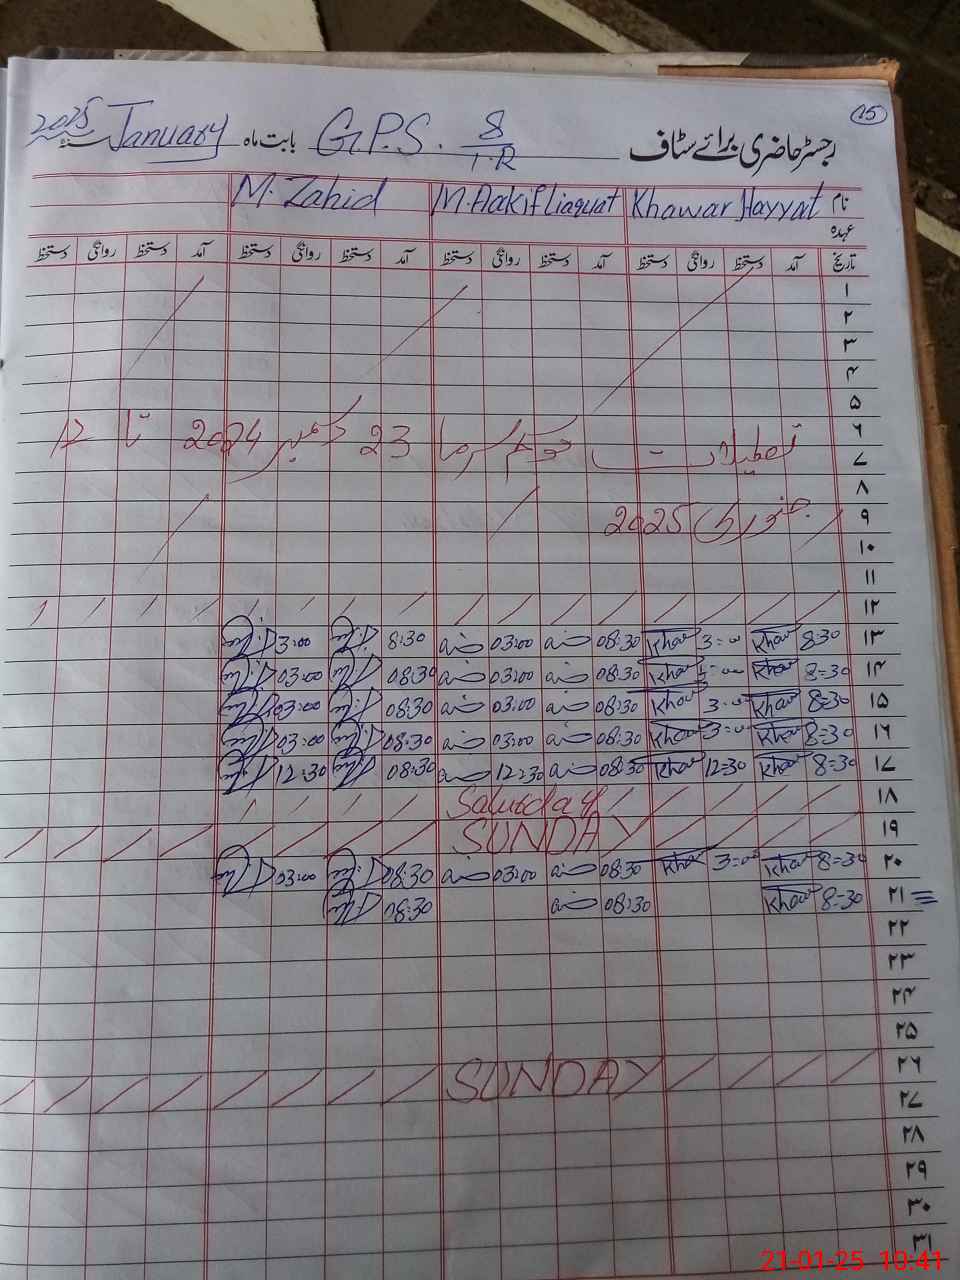 15
رجسٹر حاضری برائے سٹاف G.P.S. 8/1.R بابت ماہ January سنہ 2025
نام Khawar Hayyat M.Aakif liaquat M.Zahid
عہدہ
تاریخ آمد دستخط روانگی دستخط آمد دستخط روانگی دستخط آمد دستخط روانگی دستخط آمد دستخط روانگی دستخط
۱
۲
۳
۴
۵
۶
تعطیلات موسم سرما 23 دسمبر 2024 تا 12
۷
۸
جنوری 2025
۹
۱۰
۱۱
۱۲
۱۳ 8:30 Khawar 3:00 Khawar 08:30 03:00 8:30 3:00
۱۴ 8=30 Khawar Khawar 08:30 03:00 08:30 03:00
۱۵ 8=30 Khawar 3:00 Khawar 08:30 03:00 08:30 03:00
۱۶ 8=30 Khawar 3:00 Khawar 08:30 03:00 08:30 03:00
۱۷ 8=30 Khawar 12=30 Khawar 08:30 12:30 08:30 12:30
۱۸ Saturday
۱۹ SUNDAY
۲۰ 8=30 Khawar 3=00 Khawar 08:30 03:00 08:30 03:00
۲۱ 8=30 Khawar 08:30 08:30
۲۲
۲۳
۲۴
۲۵
۲۶ SUNDAY
۲۷
۲۸
۲۹
۳۰
۳۱
21-01-25 10:41